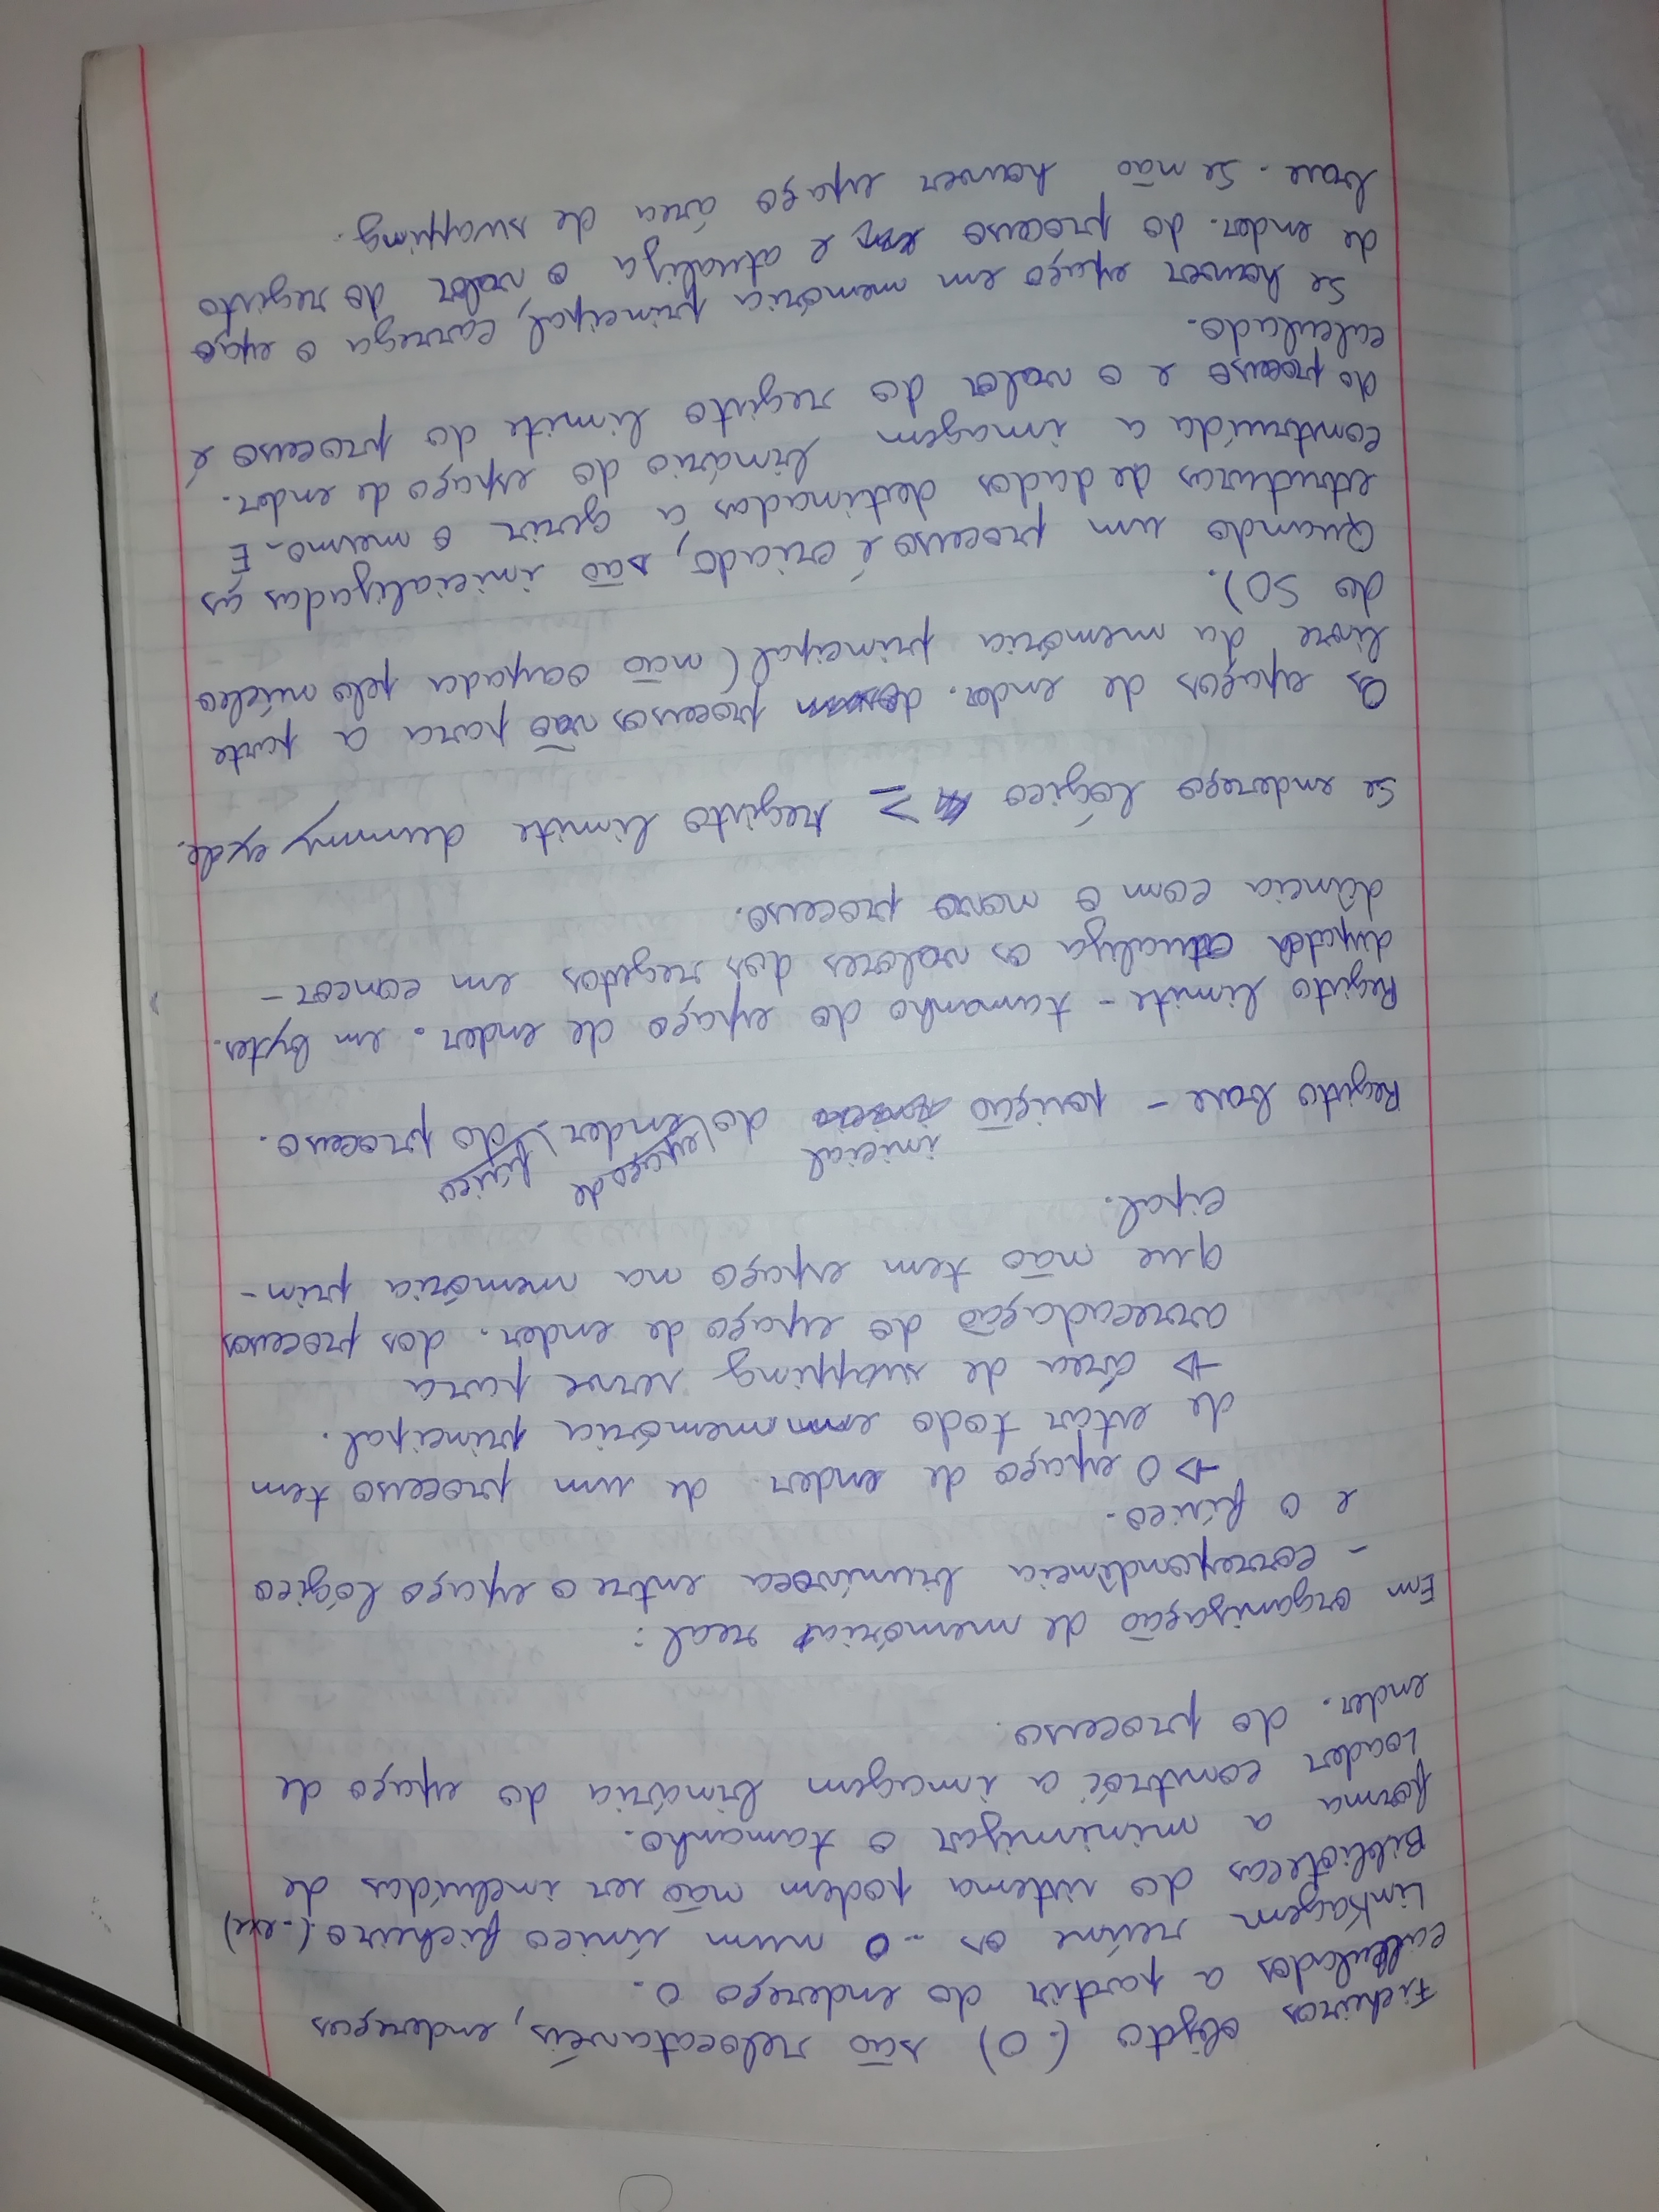 Ficheiros objeto (.o) são relocatavéis, endereços
calculados a partir do endereço 0.
Linkagem reúne os .o num único ficheiro (.exe)
Bibliotecas do sistema podem não ser incluídas de
forma a minimizar o tamanho.
Loader constrói a imagem binária do espaço de
ender. do processo.
Em organização de memória real:
- correspondência biunívoca entre o espaço lógico
e o físico.
→ O espaço de ender. de um processo tem
de estar todo em memória principal.
→ área de swapping serve para
arrecadação do espaço de ender. dos processos
que não tem espaço na memória prin-
cipal.
Registo base - posição inicial do espaço de ender. físico do processo.
Registo limite - tamanho do espaço de ender. em bytes.
dispatch atualiza os valores dos registos em concor-
dância com o novo processo.
Se endereço lógico ≥ registo limite dummy cycle.
Os espaços de ender. processos vão para a parte
livre da memória principal (não ocupada pelo núcleo
do SO).
Quando um processo é criado, são inicializadas as
estruturas de dados destinadas a gerir o mesmo. É
construída a imagem binário do espaço de ender.
do processo e o valor do registo limite do processo é
calculado.
Se houver espaço em memória principal, carrega o espaço
de ender. do processo e atualiza o valor do registo
base. Se não houver espaço área de swapping.